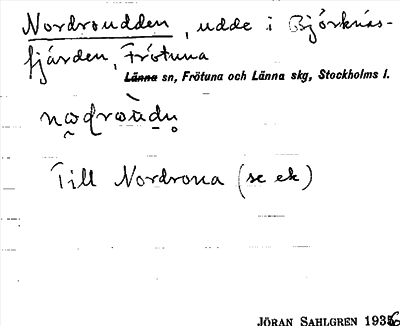 Nordroudden, udde i Björknäs-
fjärden, Frötuna
Länna sn, Frötuna och Länna skg, Stockholms l.
Till Nordrona (se ek)
JÖRAN SAHLGREN 1936